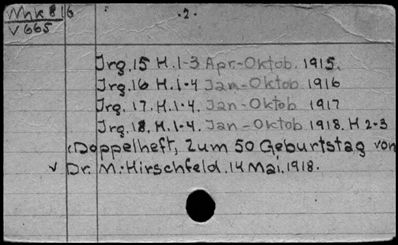 Mhk 8 16 .2.
V 665
Jrg. 15 H. 1-3 Apr-Oktob. 1915.
Jrg. 16 H. 1-4 Jan-Oktob 1916
Jrg. 17. H. 1-4. Jan-Oktob 1917
Jrg. 18. H. 1-4. Jan-Oktob. 1918. H 2-3
(Doppelheft, zum 50 Geburtstag von
v Dr. M. Hirschfeld. 14 Mai, 1918.